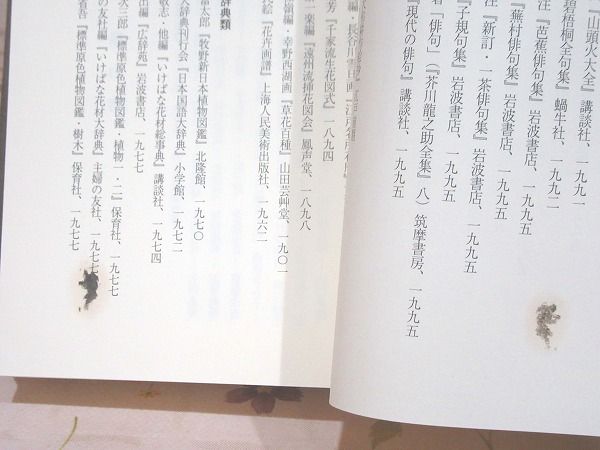 『山頭火大全』講談社、一九九一
碧梧桐全句集』蝸牛社、一九九二
注『芭蕉俳句集』岩波書店、一九九五
注『蕪村俳句集』岩波書店、一九九五
注『新訂・一茶俳句集』岩波書店、一九九五
『子規句集』岩波書店、一九九五
者「俳句」(『芥川龍之助全集』八)筑摩書房、一九九五
『現代の俳句』講談社、一九九五
芳『千家流生花図式』一八九四
一楽編『遠州流挿花図会』鳳声堂、一八九八
嶺編・幸野西湖画『草花百種』山田芸艸堂、一九〇一
絵『花卉画譜』上海人民美術出版社、一九六二
辞典類
富太郎『牧野新日本植物図鑑』北隆館、一九七〇
大辞典刊行会『日本国語大辞典』小学館、一九七二
敏志・他編『いけばな花材総事典』講談社、一九七四
出編『広辞苑』岩波書店、一九七七
次三郎『標準原色植物図鑑・植物一・二』保育社、一九七七
の友社編『いけばな花材大辞典』主婦の友社、一九七七
省吾『標準原色植物図鑑 樹木』保育社、一九七七